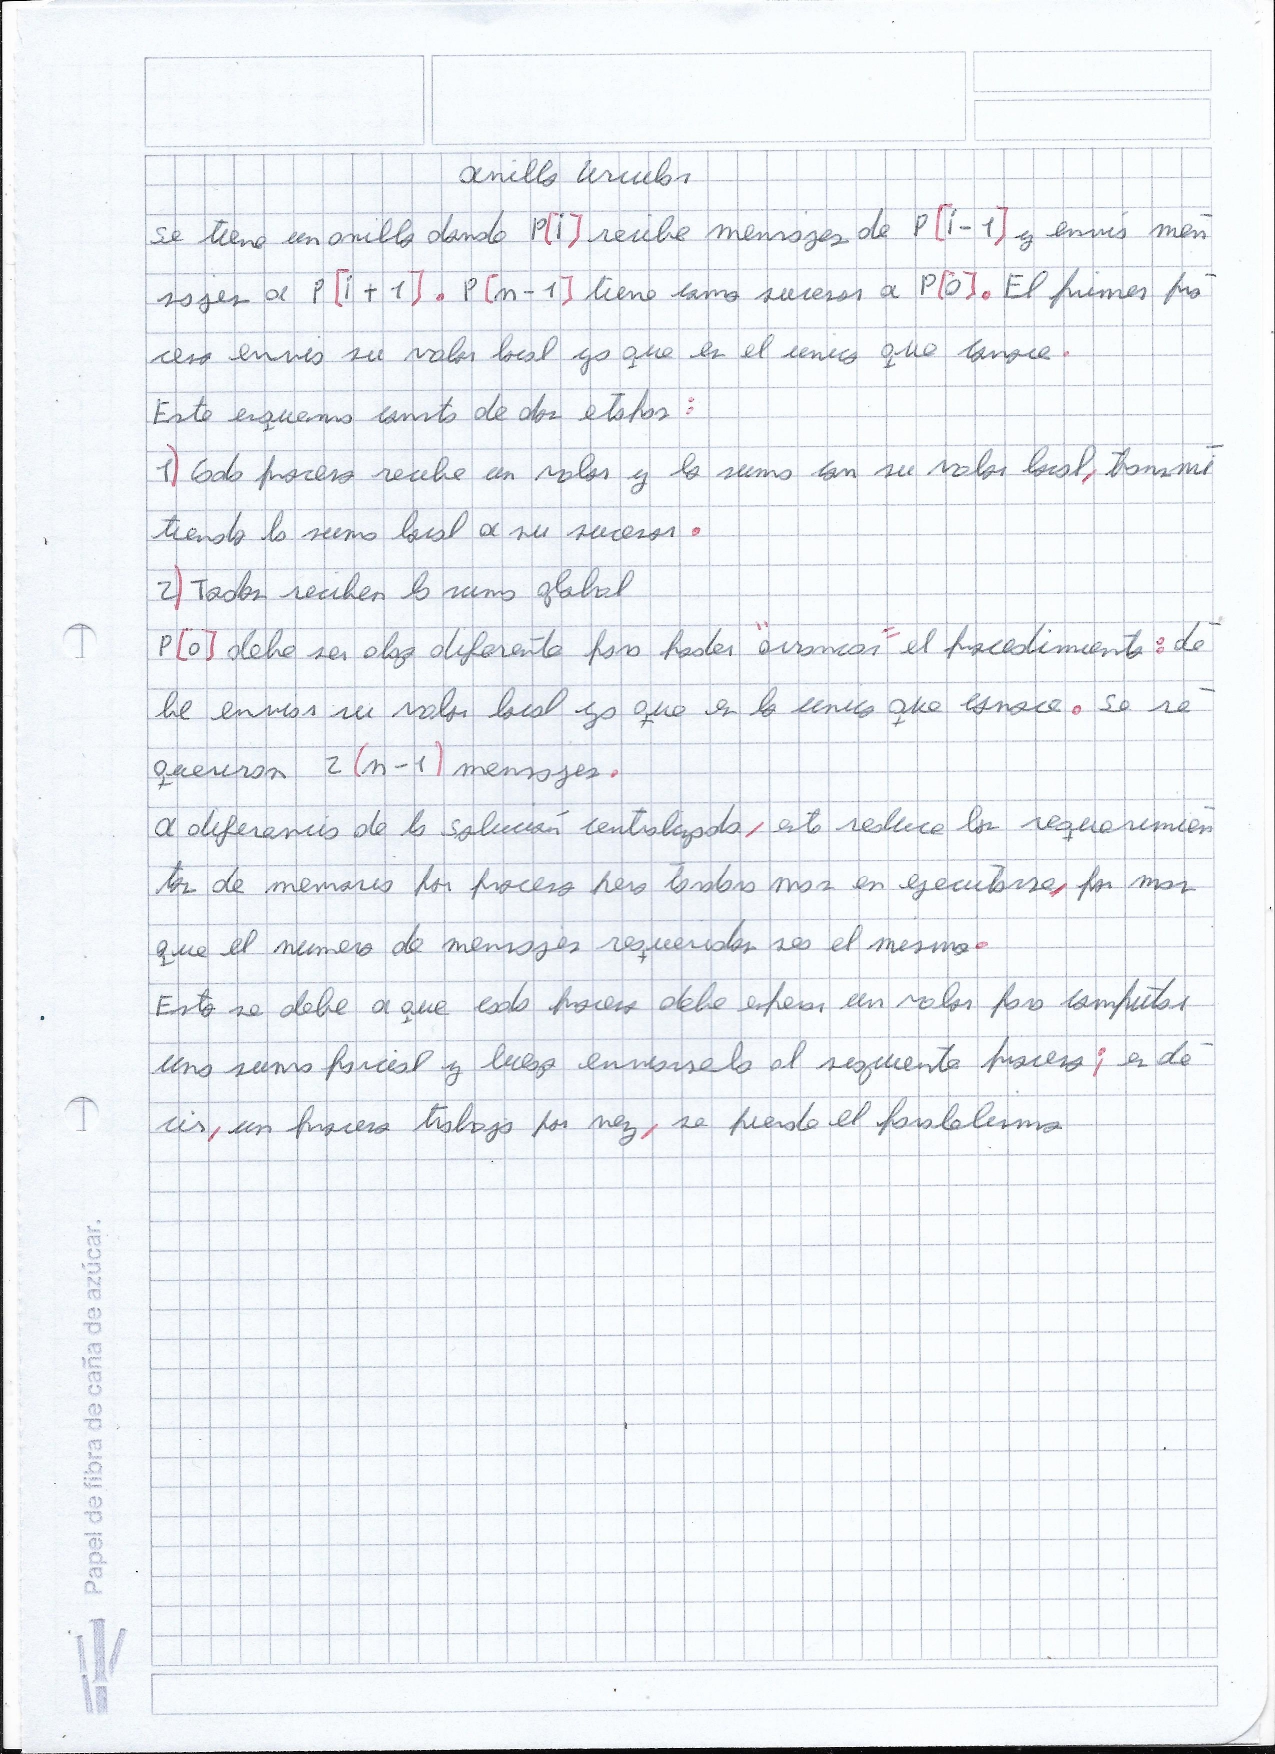 anillo circular
se tiene un anillo donde P[i] recibe mensajes de P[i-1] y envia men
sajes a P[i+1]. P[n-1] tiene como sucesor a P[0]. El primer pro
ceso envia su valor local ya que es el unico que conoce.
Este esquema consta de dos etapas:
1) Cada proceso recibe un valor y lo suma con su valor local, transmi
tiendo la suma local a su sucesor.
2) Todos reciben la suma global
P[0] debe ser algo diferente para poder "arrancar" el procedimiento: de
be enviar su valor local ya que es lo unico que conoce. Se re
quieren 2(n-1) mensajes.
a diferencia de la solución centralizada, esto reduce los requerimien
tos de memoria por proceso pero tardara mas en ejecutarse, por mas
que el numero de mensajes requeridos sea el mismo.
Esto se debe a que cada proceso debe esperar un valor para computar
una suma parcial y luego enviarsela al siguiente proceso; es de
cir, un proceso trabaja por vez, se pierde el paralelismo
Papel de fibra de caña de azúcar.